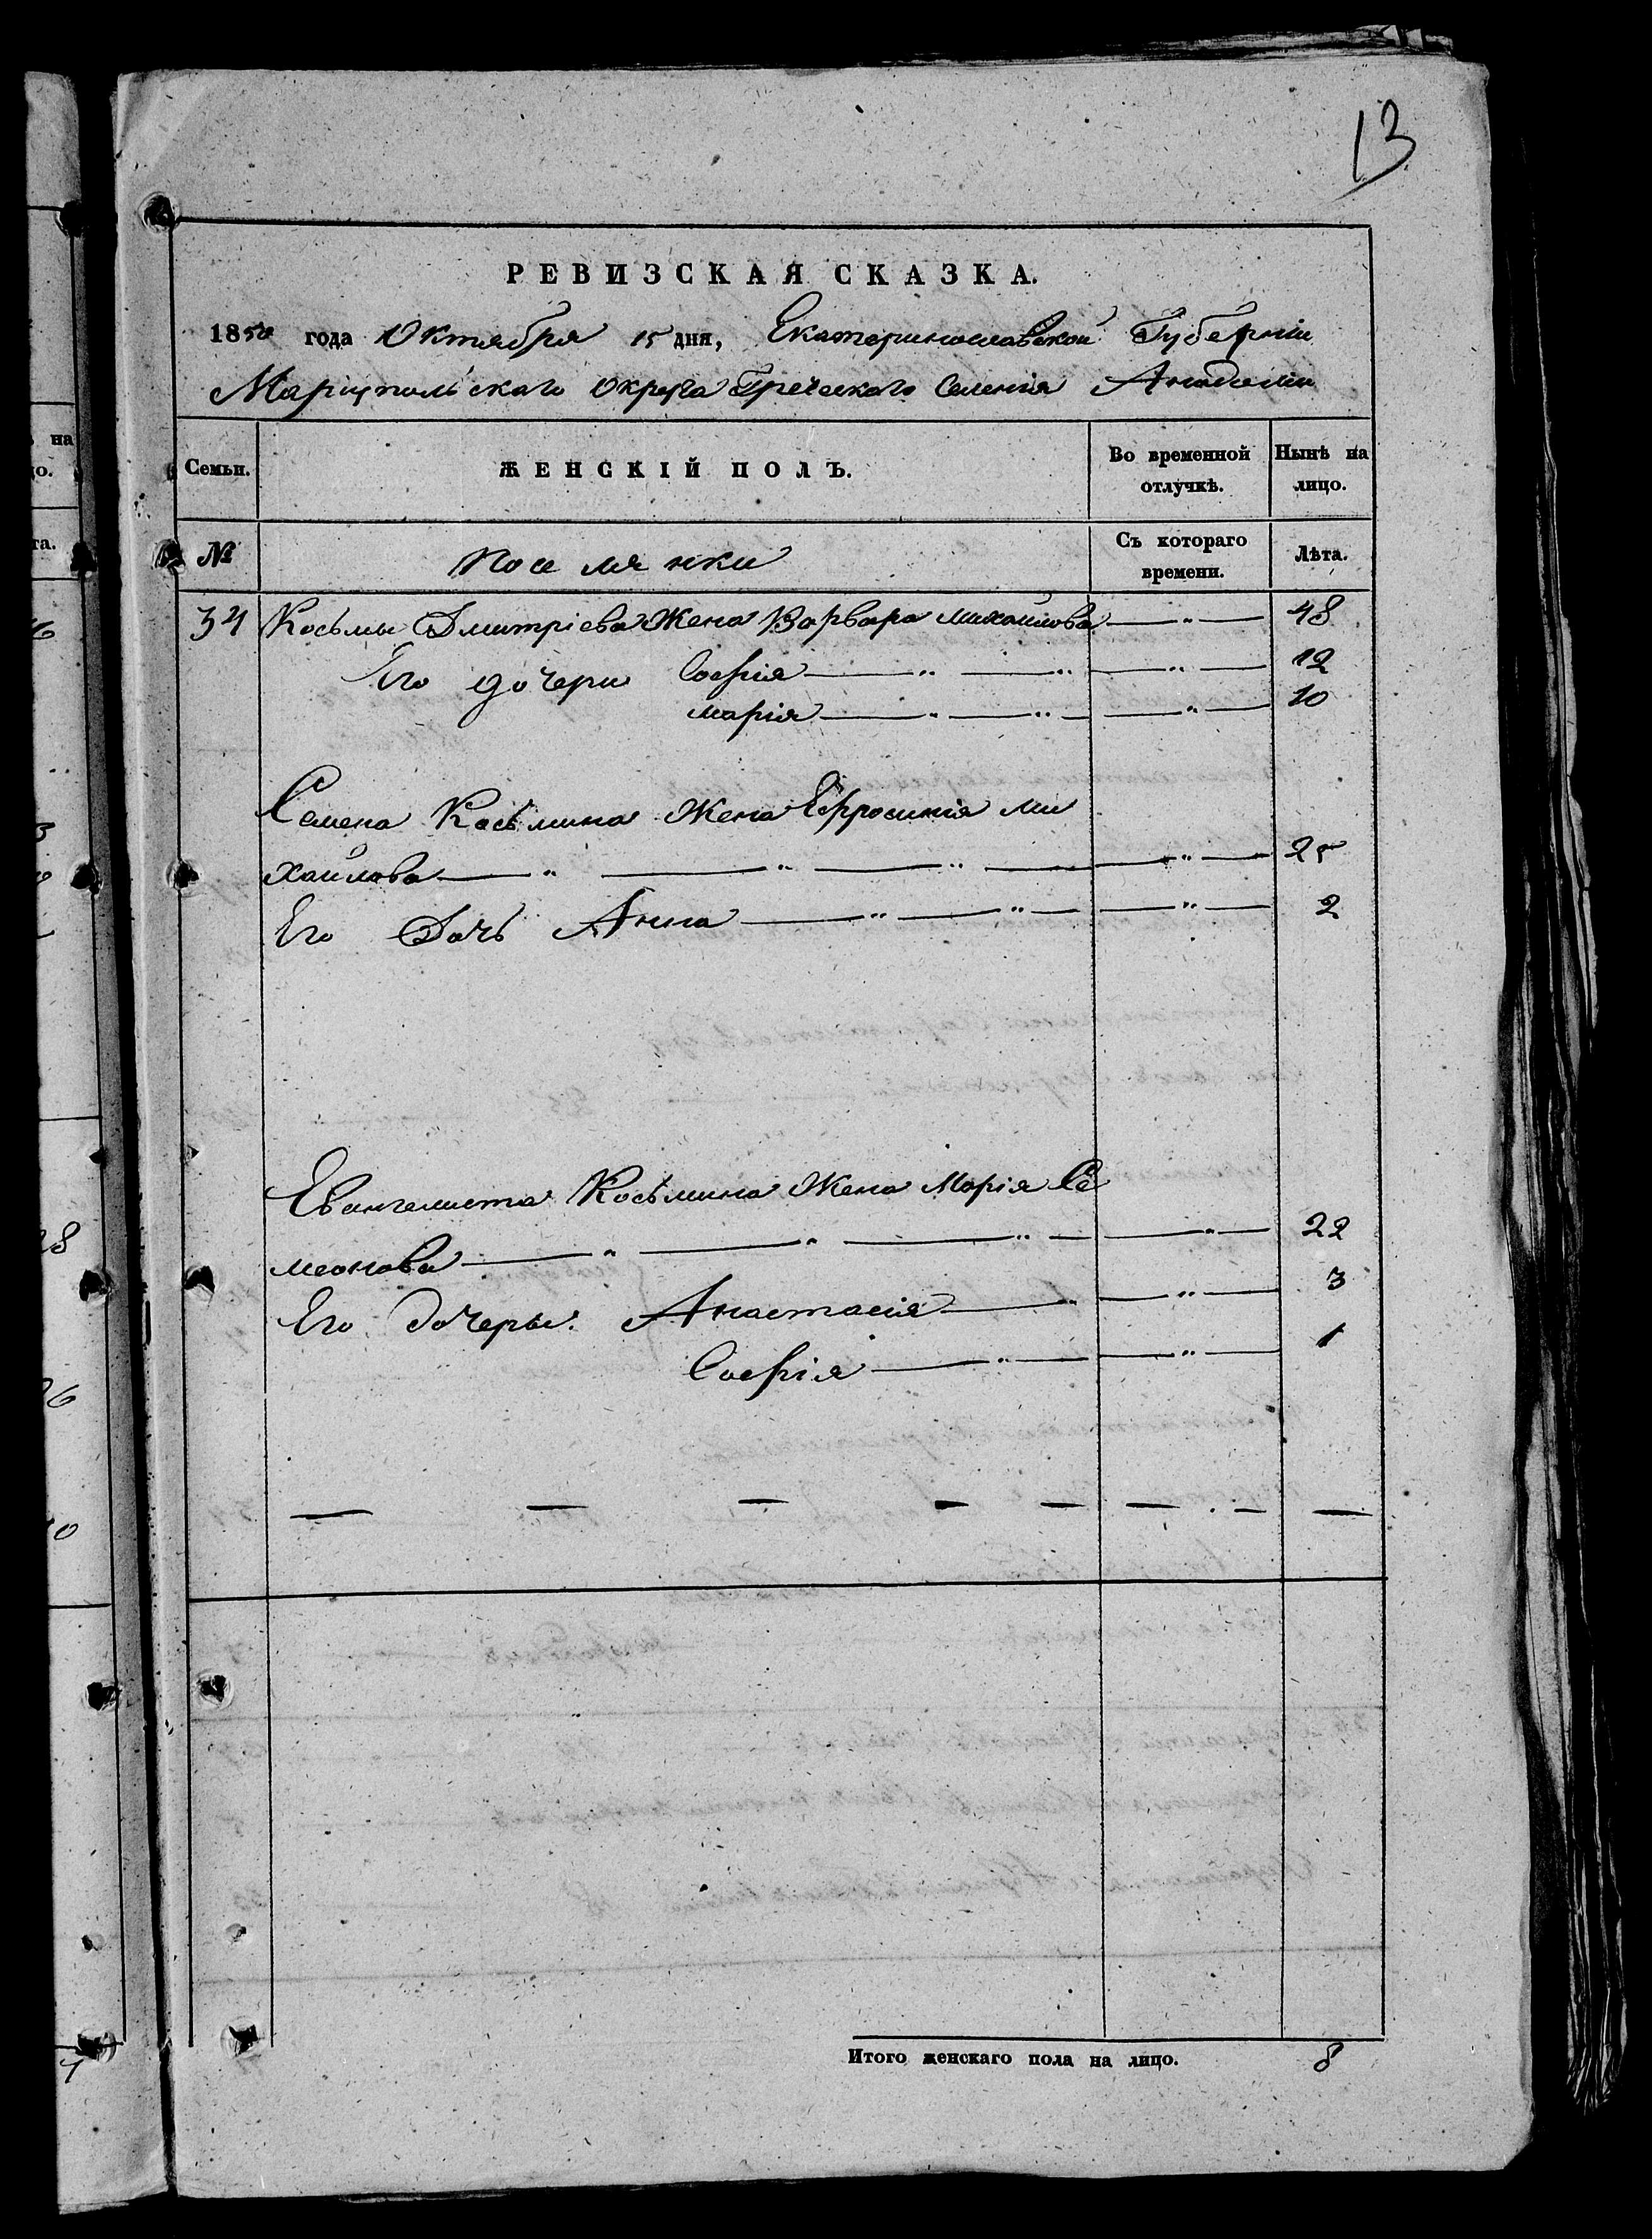 13
РЕВИЗСКАЯ СКАЗКА.
1850 года Октября 15 дня, Екатеринославской Губерніи
Маріупольскаго Округа Греческаго Селенія
Семьи. ЖЕНСКІЙ ПОЛЪ. Во временной отлучкѣ. Нынѣ на лицо.
№ Поселянки Съ котораго времени. Лѣта.
34 Косьмы Дмитріева Жена Варвара Михайлова — " — 48
Его дочери Софія — " — " — " — 12
Марія — " — " — " — 10
Семена Косьмина Жена Ефросинія Ми
хайлова — " — " — " — " — 25
Его Дочь Анна — " — " — " — 2
Евангелиста Косьмина Жена Марія Се
меонова — " — " — " — " — 22
Его Дочеры. Анастасія — " — " — 3
Софія — " — " — 1
Итого женскаго пола на лицо. 8